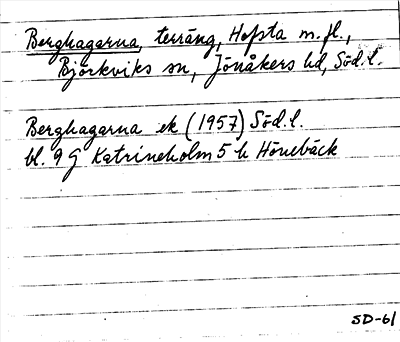 Berghagarna, terräng, Hofsta m.fl.,
Björkviks sn, Jönåkers hd, Söd.l.
Berghagarna ek (1957) Söd.l.
bl. 9 G Katrineholm 5 h Hönebäck
SD-61